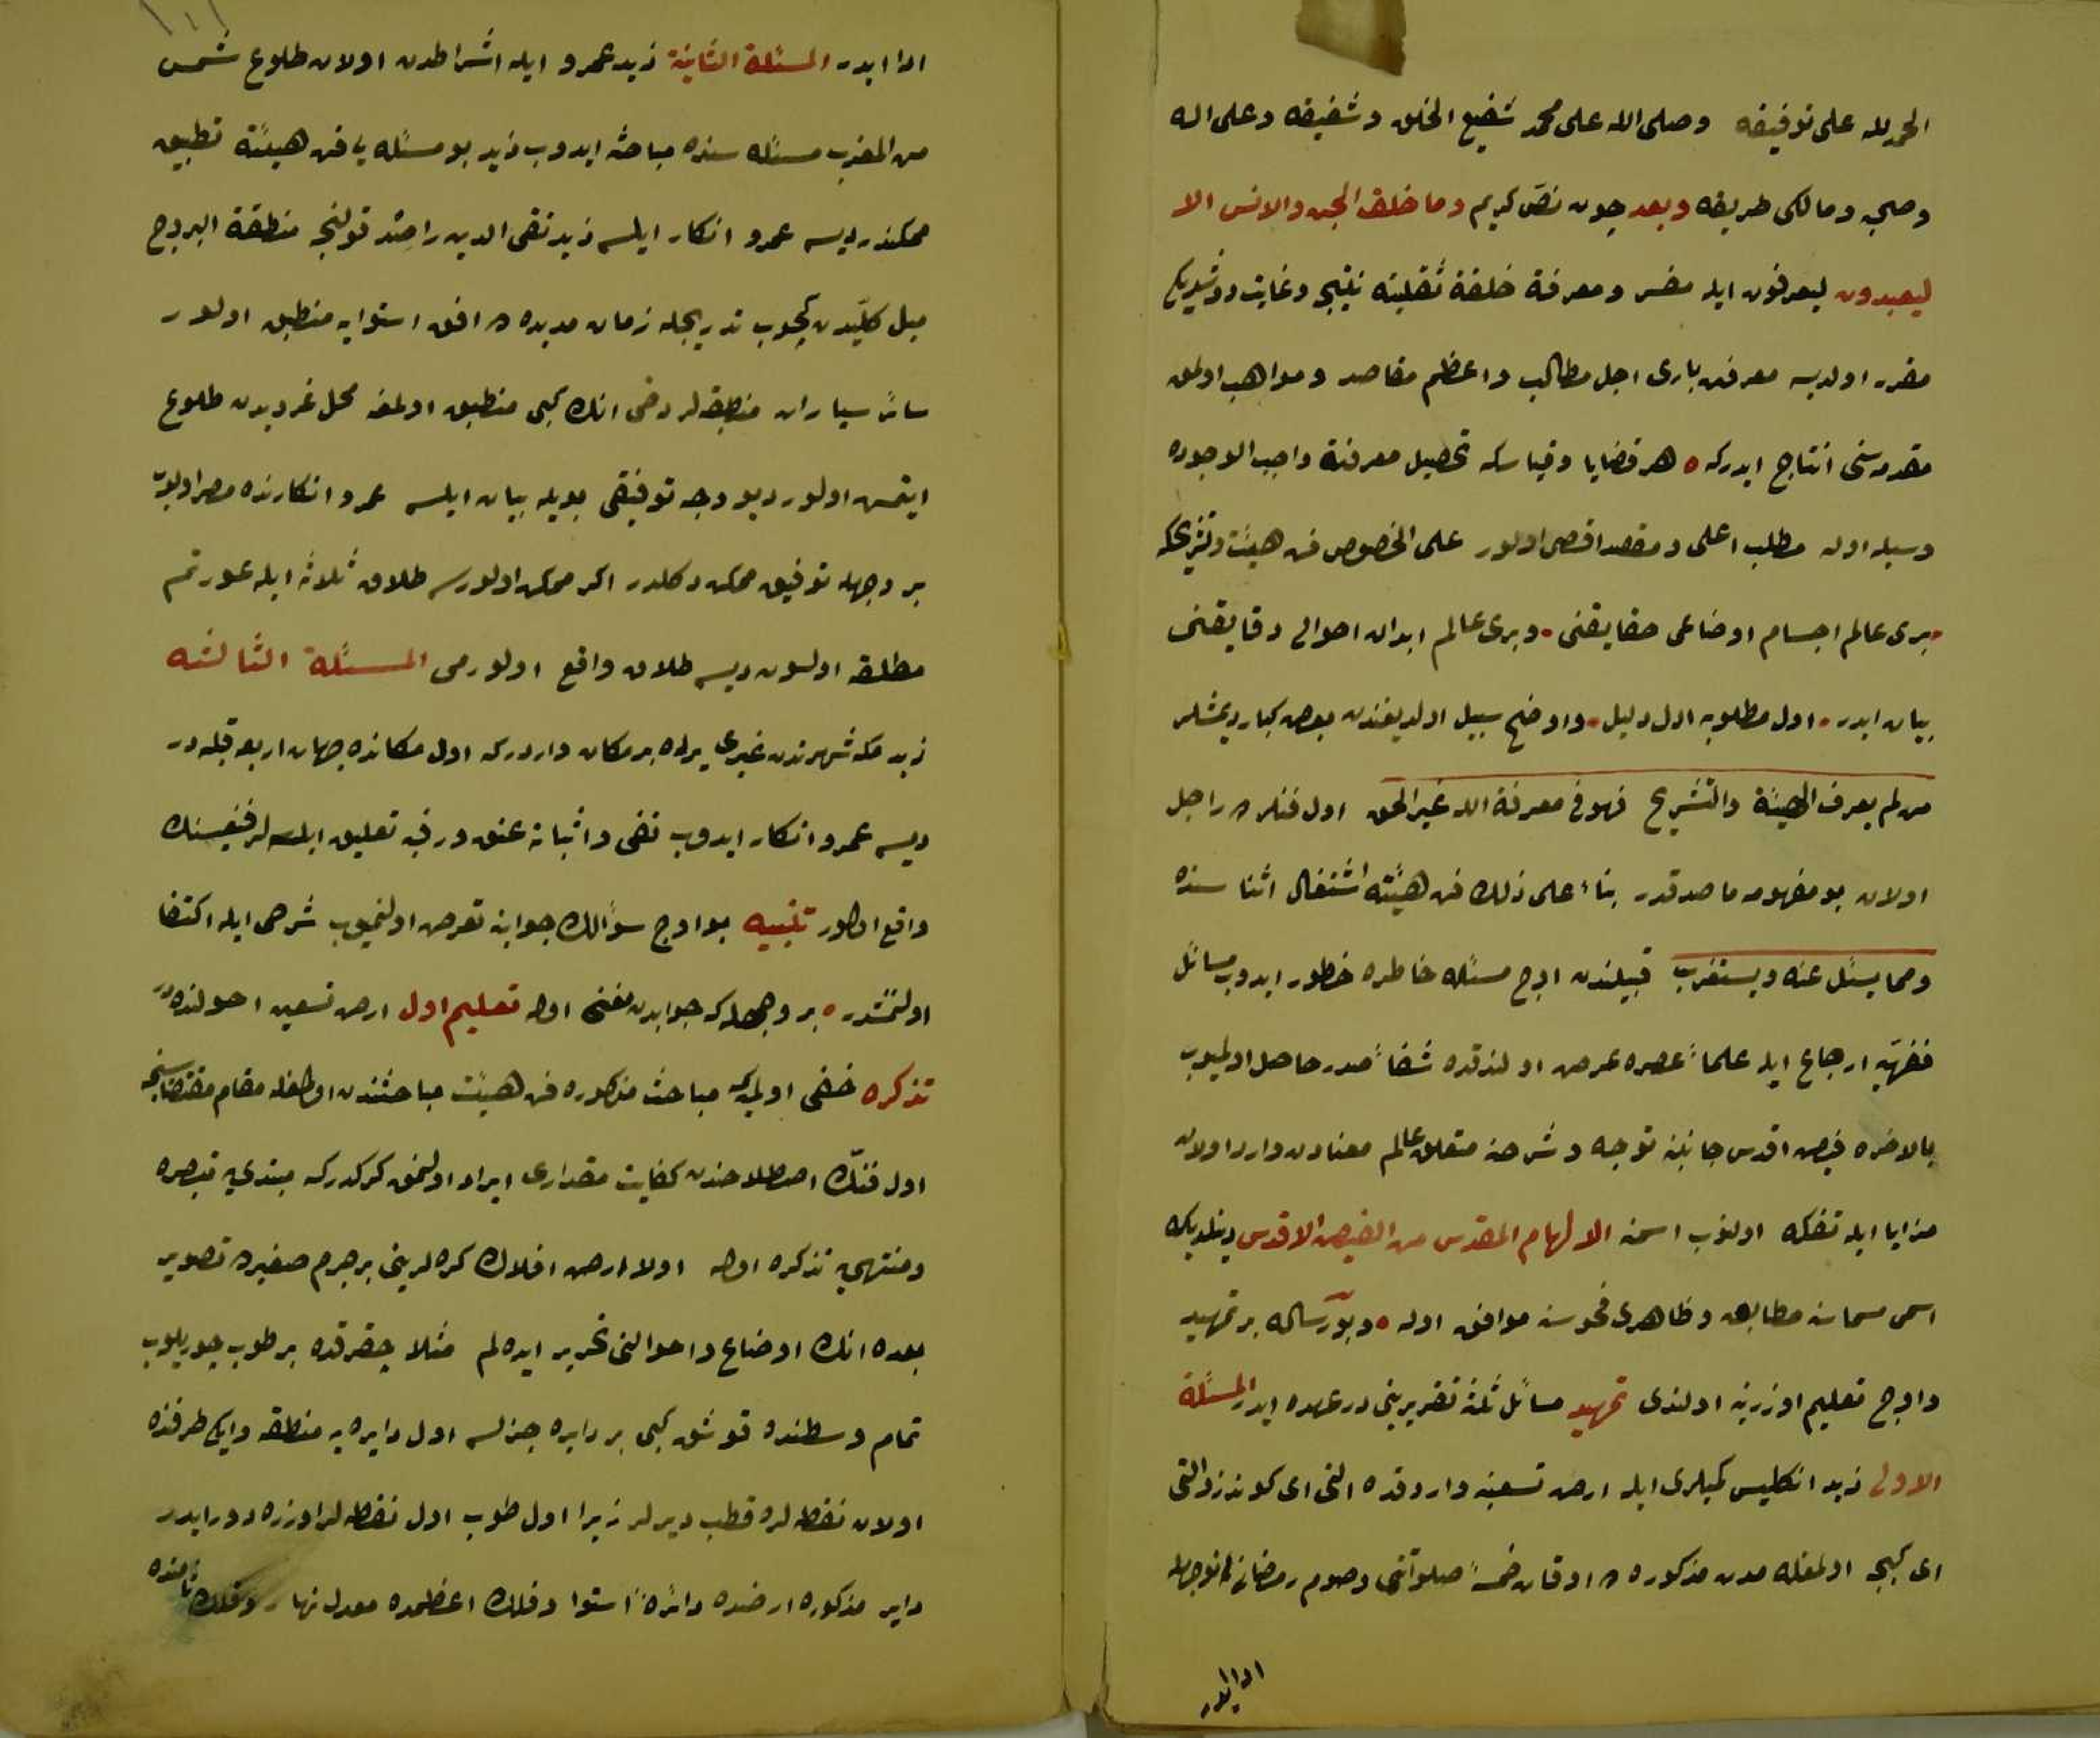 الحمد لله على توفيقه وصلى الله على محمد شفيع الخلق وشفيقه وعلى اله
وصحبه ومالكى طريقه وبعد چون نص كريم وما خلقت الجن والانس الا
ليعبدون ليعرفون ايله مفسر ومعرفة خلقة ثقلينه نتيجه وغايت
مقرر اولديسه معرفت بارى اجل مطالب واعظم مقاصد ومواهب اولمق
مقدمه سنى انتاج ايدركه هر قضايا وقياس كه تحصيل معرفة واجب الوجوده
وسيله اوله مطلب اعلى ومقصد اقصى اولور على الخصوص فن هيئت وتشريحكه
برى عالم اجسام اوضاعى حقايقنى وبرى عالم ابدان احوالى دقايقنى
بيان ايدر اول مطلوبه ادل دليل واوضح سبيل اولديغندن بعض كبار ديمشلر
من لم يعرف الهيئة والتشريح فهو فى معرفة الله غير الحق اول فنلره راجل
اولان بو مفهومه ماصدقدر بناء على ذلك فن هيئته اشتغال اثنا سنده
ومما يسئل عنه ويستغرب قبيلندن اوچ مسئله خاطره خطور ايدوب مسائل
فقهيه ارجاع ايله علماء عصره عرض اولندقده شفاء صدر حاصل اولميوب
بالاخره فيض اقدس جانبنه توجه وشرحنه متعلق عالم معنادن وارد اولان
مزايا ايله تفكه اولنوب اسمنه الالهام المقدس من الفيض الاقدس دينلديكه
اسمى مسماسنه مطابق وظاهرى فحوسنه موافق اوله وبو رساله بر تمهيد
واوچ تعليم اوزرينه اولندى تمهيد مسائل ثلثه تقريرينى در عهده ايدر المسئلة
الاولى زيد انكليس كميلرى ايله ارض تسعينه واردقده التى اى كوندز والتى
اى كيجه اولمغله مدن مذكوره ده اوقات خمسه صلوتنى وصوم رمضانى نه وجهله
ادا ايدر
ادا ايدر المسئلة الثانية زيد عمرو ايله اشراطدن اولان طلوع شمس
من المغرب مسئله سنده مباحثه ايدوب زيد بو مسئله يى فن هيئته تطبيق
ممكندر ديسه عمرو انكار ايلسه زيد تقى الدين راصد قولنجه منطقة البروج
ميل كليدن كچوب تدريجله زمان مديده ده افق استوايه منطبق اولور
سائر سياراتك منطقه لر دخى انك كبى منطبق اولمغله محل غروبدن طلوع
ايتمش اولور ديو وجه توفيقى بويله بيان ايلسه عمرو انكارنده مصر اولوب
بر وجهله توفيق ممكن دكلدر اكر ممكن اولورسه طلاق ثلاثه ايله عورتم
مطلقه اولسون ديسه طلاق واقع اولورمى المسئلة الثالثه
زيد مكه شهرندن غيرى يرده بر مكان واردركه اول مكانده جهات اربعه قبله در
ديسه عمرو انكار ايدوب نفى واثباته عتق ورقه تعليق ايلسه لر قنغيسنك
واقع اولور تنبيه بو اوچ سؤالك جوابنه تعرض اولنميوب شرحى ايله اكتفا
اولنمشدر بر وجهله كه جوابدن مغنى اوله تعليم اول ارض تسعين احوالنده در
تذكره خفى اولميه كه مباحث مذكوره فن هيئت مباحثندن اولمغله مقام مقتضاسنجه
اول فنك اصطلاحندن كفايت مقدارى ايراد اولنمق كركدركه مبتدى يه تبصره
ومنتهى يه تذكره اوله اولا ارض افلاك كره لرينى بر جرم صغيره تصوير
بعده انك اوضاع واحوالنى تحرير ايده لم مثلا چقرقده بر طوب چوريلوب
تمام وسطنده قوشق كبى بر دايره چزلسه اول دايره يه منطقه وايكى طرفنده
اولان نقطه لره قطب ديرلر زيرا اول طوب اول نقطه لر اوزره دور ايدر
داير مذكوره ارضده دائره استوا وفلك اعظمده معدل نهار وفلك ثامنده